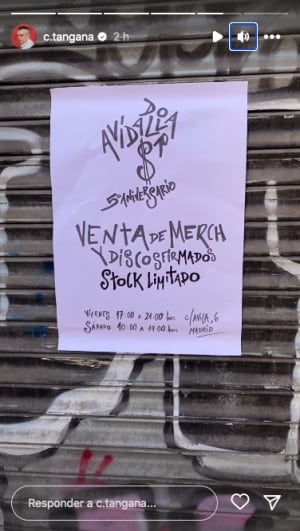 c.tangana 2 h
AVIDA
DOLLAR$
5º ANIVERSARIO
VENTA DE MERCH
Y DISCOS FIRMADOS
STOCK LIMITADO
VIERNES 17:00 A 21:00 hrs.
SÁBADO 10:00 A 14:00 hrs.
C/ÁVILA, 6
MADRID
Responder a c.tangana...